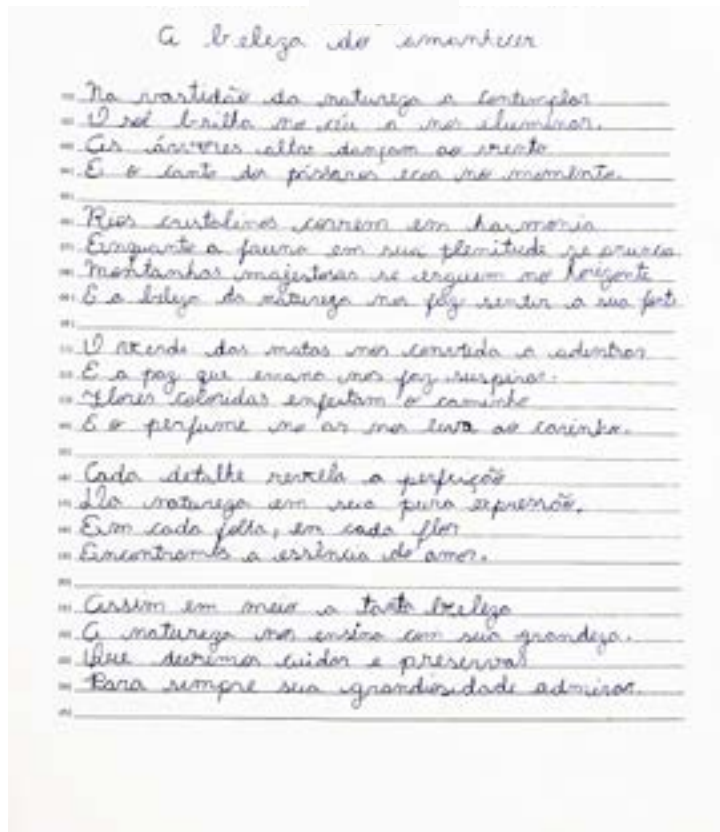 A beleza do amanhecer
Na vastidão da natureza a contemplar
O sol brilha no céu a nos iluminar.
As árvores altas dançam ao vento
E o canto dos pássaros ecoa no momento.
Rios cristalinos correm em harmonia
Enquanto a fauna em sua plenitude se
Montanhas majestosas se erguem no horizonte
E a beleza da natureza nos faz sentir a sua fonte
O verde das matas nos convida a adentrar
E a paz que emana nos faz suspirar.
Flores coloridas enfeitam o caminho
E o perfume no ar nos leva ao carinho.
Cada detalhe revela a perfeição
Da natureza em sua pura expressão.
Em cada folha, em cada flor
Encontramos a essência do amor.
Assim em meio a tanta beleza
A natureza nos ensina com sua grandeza.
Que devemos cuidar e preservar
Para sempre sua grandiosidade admirar.